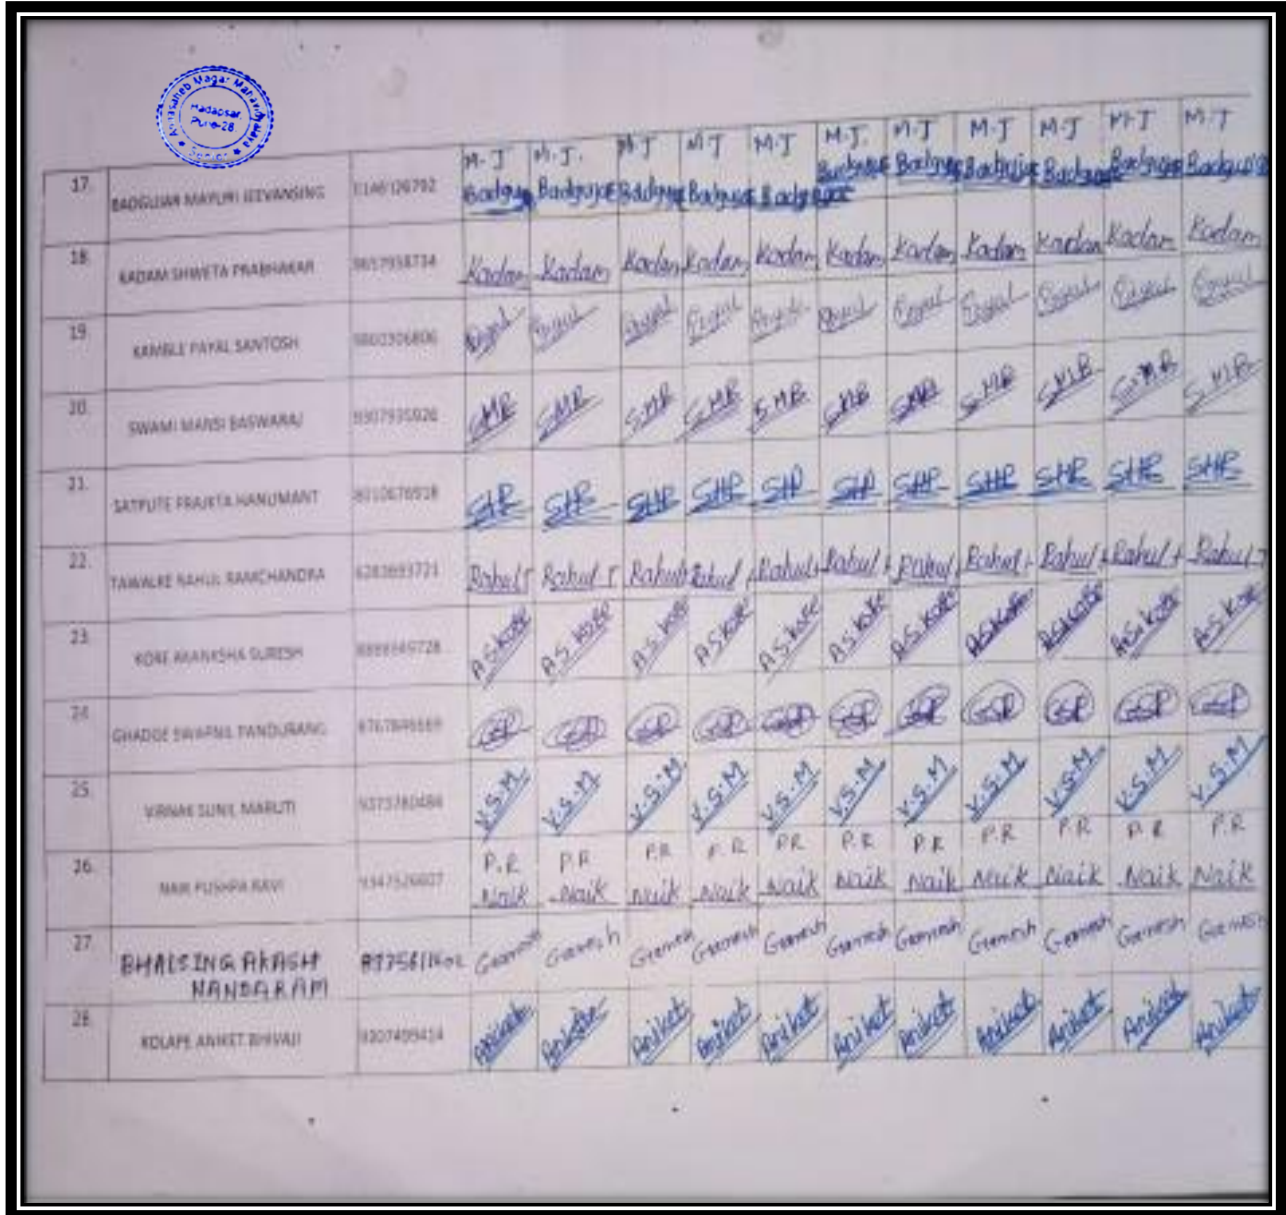 Annasaheb Magar Mahavidyalaya
Hadapsar,
Pune-28.
17. BADGUJAR MAYURI JEEVANSING M.J M.J. M.J M.J M.J M.J. M.J M.J M.J M.J M.J
Badgujar Badgujar Badgujar Badgujar Badgujar Badgujar Badgujar Badgujar Badgujar Badgujar Badgujar
18. KADAM SHWETA PRABHAKAR Kadam Kadam Kadam Kadam Kadam Kadam Kadam Kadam Kadam Kadam Kadam
19. KAMBLE PAYAL SANTOSH 9860306806 Payal Payal Payal Payal Payal Payal Payal Payal Payal Payal Payal
20. SWAMI MANSI BASWARAJ 9307935926 SMB SMB S.MB S.MB S.MB SMB SMB S.MB S.MB S.MB S.MB
21. SATPUTE PRAJKTA HANUMANT SHP SHP SHP SHP SHP SHP SHP SHP SHP SHP SHP
22. TAWALRE RAHUL RAMCHANDRA Rahul T Rahul T Rahul Rahul Rahul Rahul Rahul Rahul Rahul Rahul Rahul T
23. KORE AKANKSHA SURESH A.S.Kore A.S.Kore A.S.Kore A.S.Kore A.S.Kore A.S.Kore A.S.Kore A.S.Kore A.S.Kore A.S.Kore A.S.Kore
24. GHADGE SWAPNIL PANDURANG GSP GSP GSP GSP GSP GSP GSP GSP GSP GSP GSP
25. VIRNAK SUNIL MARUTI 9373780484 V.S.M V.S.M V.S.M V.S.M V.S.M V.S.M V.S.M V.S.M V.S.M V.S.M V.S.M
26. NAIK PUSHPA RAVI P.R P.R P.R P.R P.R P.R P.R P.R P.R P.R P.R
Naik Naik Naik Naik Naik Naik Naik Naik Naik Naik Naik
27. BHALSING AKASH Ganesh Ganesh Ganesh Ganesh Ganesh Ganesh Ganesh Ganesh Ganesh Ganesh Ganesh
NANDARAM
28. KOLAPE ANIKET BHIVAJI 9307499414 Aniket Aniket Aniket Aniket Aniket Aniket Aniket Aniket Aniket Aniket Aniket